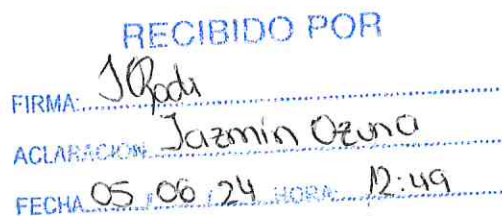 RECIBIDO POR
FIRMA:
ACLARACION Jazmin Ozuna
FECHA 05 / 06 / 24 HORA: 12:49